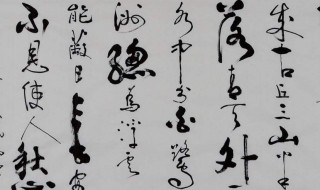 成古丘三山半
落青天外
水中分白鷺
洲總為浮雲
能蔽日長安
不見使人愁